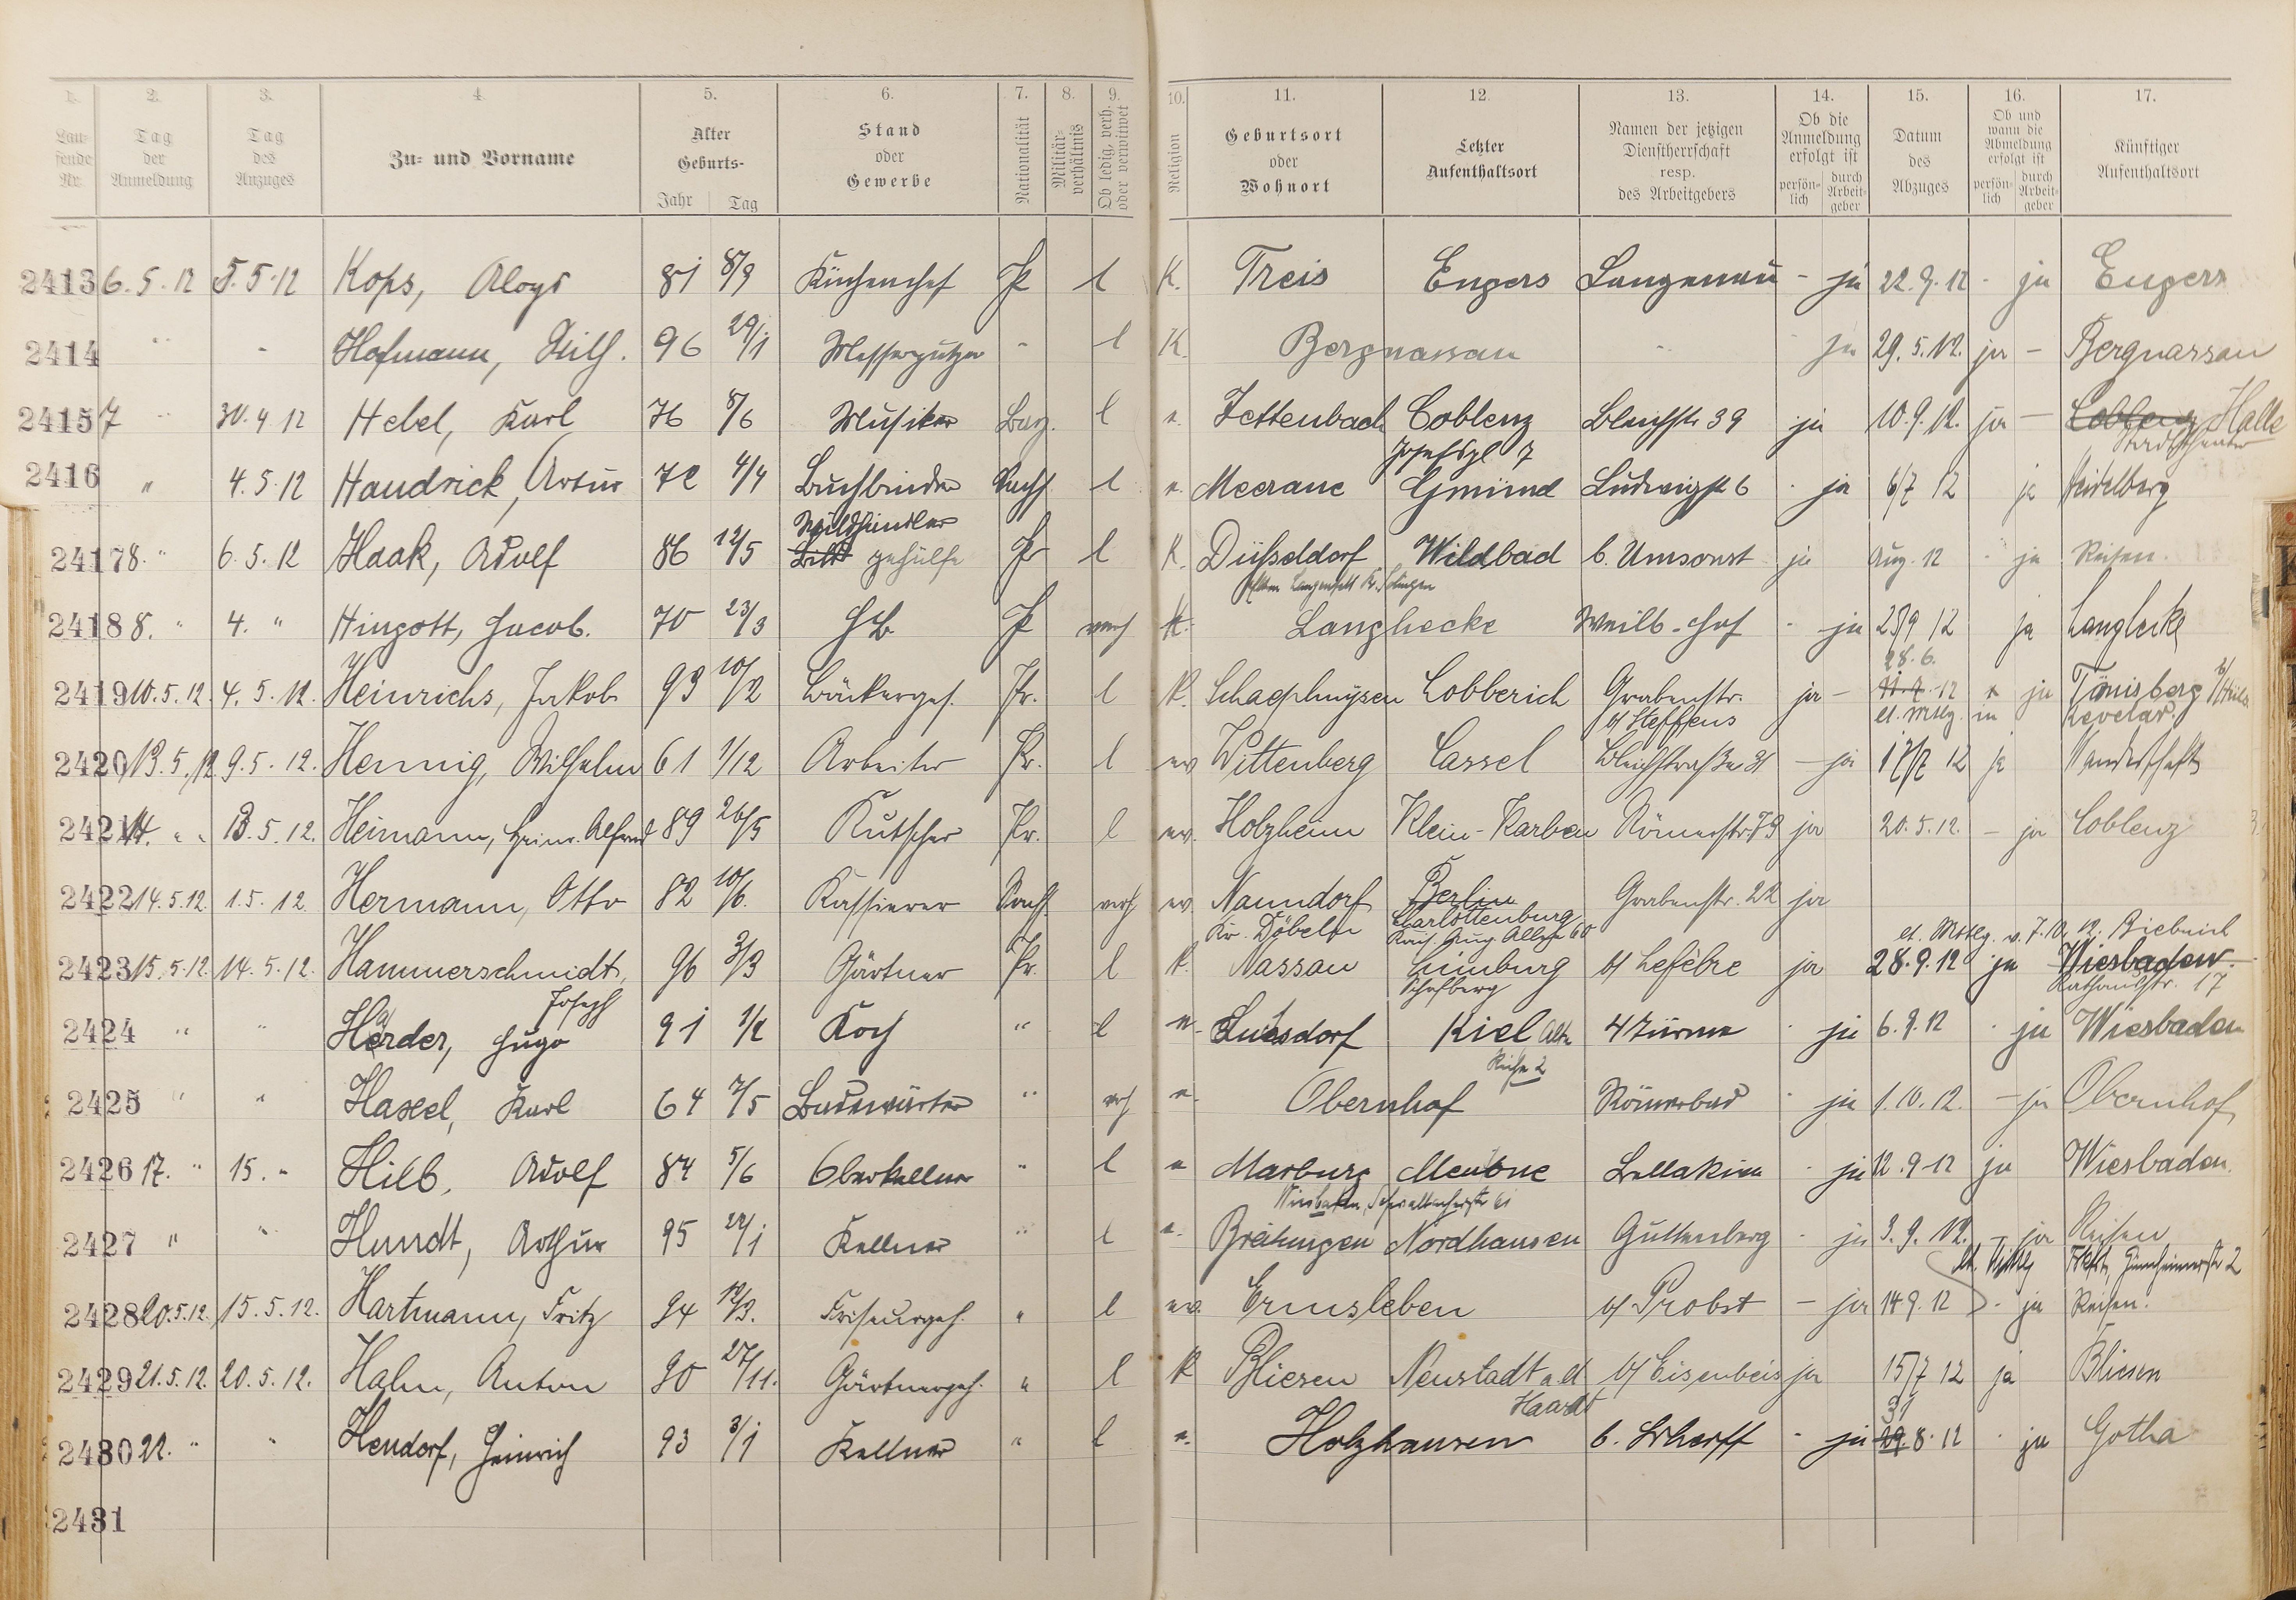 1. 2. 3. 4. 5. 6. 7. 8. 9. 10. 11. 12. 13. 14. 15. 16. 17.
Lau-
fende
Nr.
Tag
der
Anmeldung
Tag
des
Anzuges
Zu- und Vorname
Alter
Geburts-
Jahr Tag
Stand
oder
Gewerbe
Nationalität
Militär-
verhältnis
Ob ledig, verh.
oder verwitwet
Religion
Geburtsort
oder
Wohnort
Letzter
Aufenthaltsort
Namen der jetzigen
Dienstherrschaft
resp.
des Arbeitgebers
Ob die
Anmeldung
erfolgt ist
persön-
lich
durch
Arbeit-
geber
Datum
des
Abzuges
Ob und
wann die
Abmeldung
erfolgt ist
persön-
lich
durch
Arbeit-
geber
Künftiger
Aufenthaltsort
2413 6.5.12 5.5.12 Kops, Aloys 81 8/9 Küchenchef Pr l K. Treis Engers Langenau - ja 22.9.12 - ja Engers
2414 " - Hofmann, Wilh. 96 29/1 Messerputzer - l K. Bergnassau ja 29.5.12. ja - Bergnassau
2415 7 " 30.4.12 Hebel, Karl 76 8/6 Musiker Bay. l e. Zettenbach Coblenz Bleichstr 39 ja 10.9.12. ja - Coblenz Halle
Josefspl 7 Stadttheater
2416 " 4.5.12 Handrick, Artur 72 4/4 Buchbinder Sachs. l e. Meerane Gmünd Ludwigstr 6 - ja 6/7 12 ja Heidelberg
Wildhändler
2417 8. " 6.5.12 Haak, Adolf 86 12/5 gehülfe Pr l K. Düsseldorf Wildbad b. Umsonst ja Aug. 12 - ja Reisen.
Langenfeld Kr. Solingen
2418 8. " 4. " Hingott, Jacob. 70 23/3 Pr verh K. Langhecke Weilb. Hof - ja 23/9 12 ja Langhecke
28.6.
2419 10.5.12. 4.5.12. Heinrichs, Jakob 93 10/2 Bäckerges. Pr. l K. Schaephuysen Lobberich Grabenstr. ja - 12 ja Tönisberg
b/ Steffens lt. Mttlg. in Kevelar.
2420 13.5.12 9.5.12. Hennig, Wilhelm 61 1/12 Arbeiter Pr. l ev Wittenberg Cassel Bleichstraße 31 - ja 17/7 12 ja Wanderschaft
2421 14. " " 13.5.12. Heimann, Heinr. Alfred 89 26/5 Kutscher Pr. l ev. Holzheim Klein-Karben Römerstr 79 ja 20.5.12. - ja Coblenz
2422 14.5.12. 1.5.12 Hermann, Otto 82 10/6. Kassierer Sachs. verh ev. Naundorf Berlin Grabenstr. 22 ja
Kr. Döbeln Charlottenburg
Kais. Aug. Allee 60 lt. Mttlg. v. 7.10.12. Biebrich
2423 15.5.12 14.5.12. Hammerschmidt, 96 3/3 Gärtner Pr. l K. Nassau Limburg b/ Lefébre ja 28.9.12 ja Wiesbaden.
Joseph Schafberg Rathausstr. 17
2424 " " Harder, Hugo 91 1/2 Koch " l e. Kiel 4 Türme - ja 6.9.12 - ja Wiesbaden
Reihe 2
2425 " " Hasel, Karl 64 7/5 Badewärter " vrh e. Obernhof Römerbad - ja 1.10.12. - ja Obernhof
2426 17. " 15. " Hilb, Adolf 84 5/6 Oberkellner " l e Marburg Mentone Bellakiva - ja 12.9.12 ja Wiesbaden.
Wiesbaden, Schwalbacherstr 61
2427 " " Hundt, Arthur 95 22/1 Kellner " l e. Breitungen Nordhausen Guttenberg - ja 3.9.12. - ja Reisen
lt. Mttlg Frkft, Ginnheimerstr 2
2428 20.5.12. 15.5.12. Hartmann, Fritz 94 12/3. Friseurgeh. " l ev. Ermsleben b/ Probst - ja 14 9.12 - ja Reisen.
2429 21.5.12. 20.5.12. Hahn, Anton 90 27/11. Gärtnergeh. " l K Bliesen Neustadt a.d. b/ Eisenbeis ja 15/7 12 ja Bliesen
Haardt 31
2430 22. " " Hendorf, Heinrich 93 3/1 Kellner " l e. Holzhausen b. Scherff - ja 29 8.12 - ja Gotha
2431